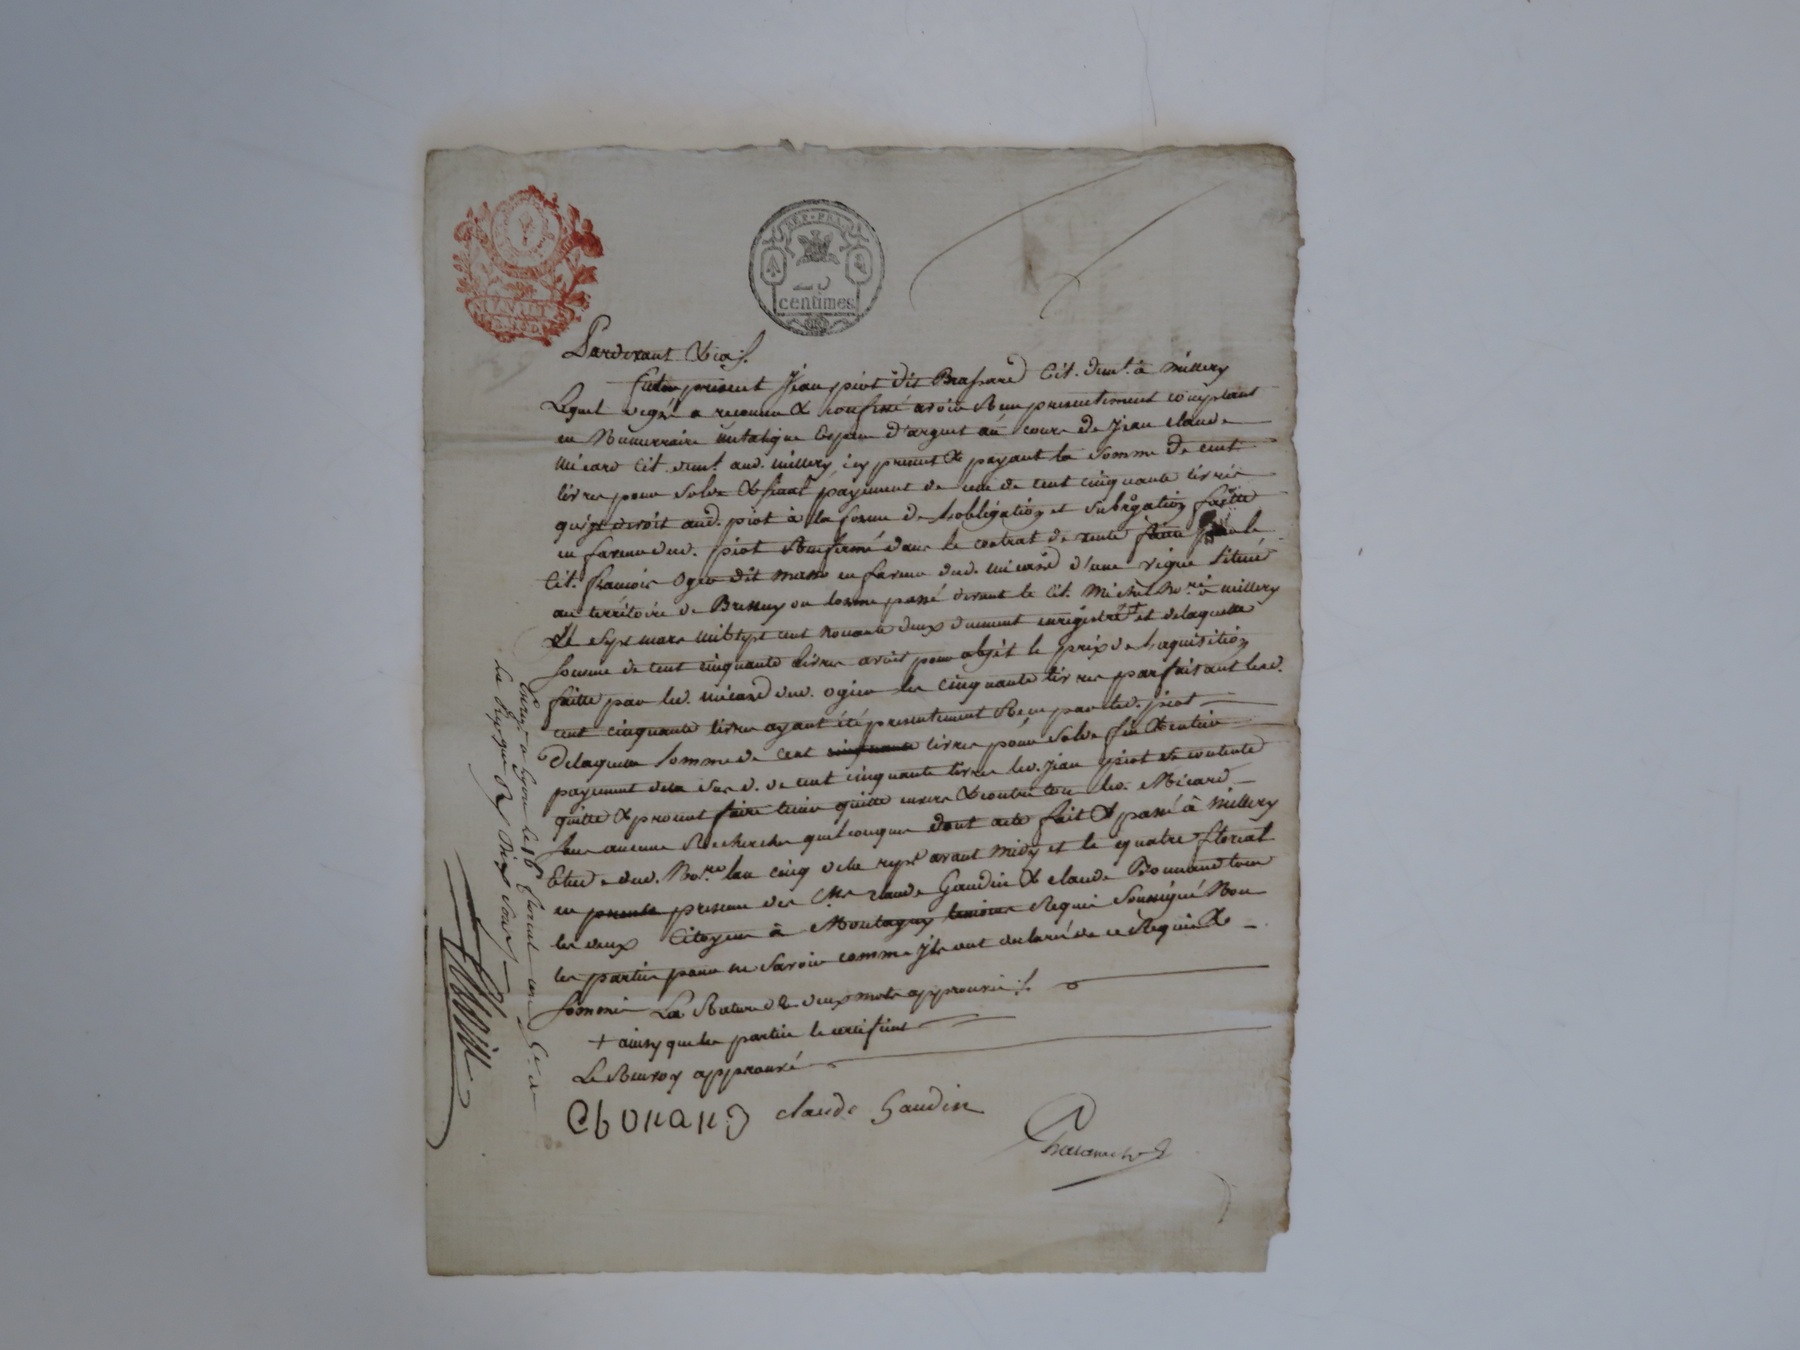 REP. FRA.
25
centimes
Pardevant &ca
fut present Jean piot dit Brassard Cit. demt. à Millery
Lequel de gré a reconnu & confessé avoir Reçu presentement comptant
en Numerraire metalique Espece d'argent au cours de Jean claude
Micard Cit. demt. aud. Millery, icy present & payant la somme de cent
livres pour Solde & final payement de celle de cent cinquante livres
qu'il devoit aud. piot à la forme de Lobligation et Subrogation faitte
en faveur dud. piot Renfermé dans le contrat de vente par le
Cit. françois Ogier dit en faveur dud. Micard d'une vigne Situé
au territoire de passé devant le Cit. Michel Nore. à Millery
Le Sept mars mil sept cent Nonante deux duement enregistré et delaquelle
somme de cent cinquante livres avoit pour objet le prix de Laquisition
faitte par led. Micard dud. Ogier les cinquante livres parfaisant lesd.
cent cinquante livres ayant été presentement Reçu par led. piot
Delaquelle Somme de cent cinquante livres pour Solde fin & entier
payement de la Sus d. de cent cinquante livres led. Jean piot se contente
quitte & promet faire tenir quitte envers & contre tous led. Micard
sans aucune Recherche quelconque dont acte fait & passé à Millery
Etude dud. Nore. lan cinq de la repe. avant midy et le quatre floreal
en presence des Cits. claude Gaudin & claude Bonnand tous
les deux Citoyens à Montagny temoins Requis Soussigné Non
les parties pour ne Savoir comme ils ont declaré de ce Requis &
Sommé La Rature de deux mots approuvée
+ ainsy que les parties le certifient
Le Renvoy approuvé
C bonand claude Gaudin
Enregé. à Lyon le 16 floreal an 5e.